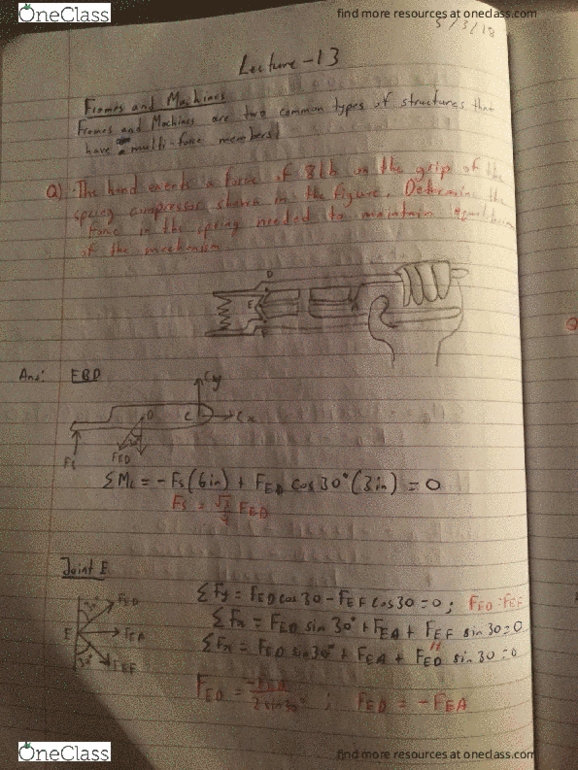 OneClass
find more resources at oneclass.com
5/3/18
Lecture - 13
Frames and Machines
Frames and Machines are two common types of structures that
have multi-force members!
Q) The hand exerts a force of 8 lb on the grip of the
spring compressor shown in the figure. Determine the
force in the spring needed to maintain equilibrium
of the mechanism
D
E
Ans: FBD
Cy
D C Cx
30°
Fs FED
ΣMc = -Fs(6in) + FED cos30°(3in) = 0
Fs = FED
Joint E
FED
E FEA
FEF
ΣFy = FED cos30 - FEF cos30 = 0 ; FED = FEF
ΣFx = FED sin 30° + FEA + FEF sin 30 = 0
ΣFx = FED sin30° + FEA + FED sin 30 = 0
FED = -FEA / 2 sin30° ; FED = -FEA
OneClass
find more resources at oneclass.com